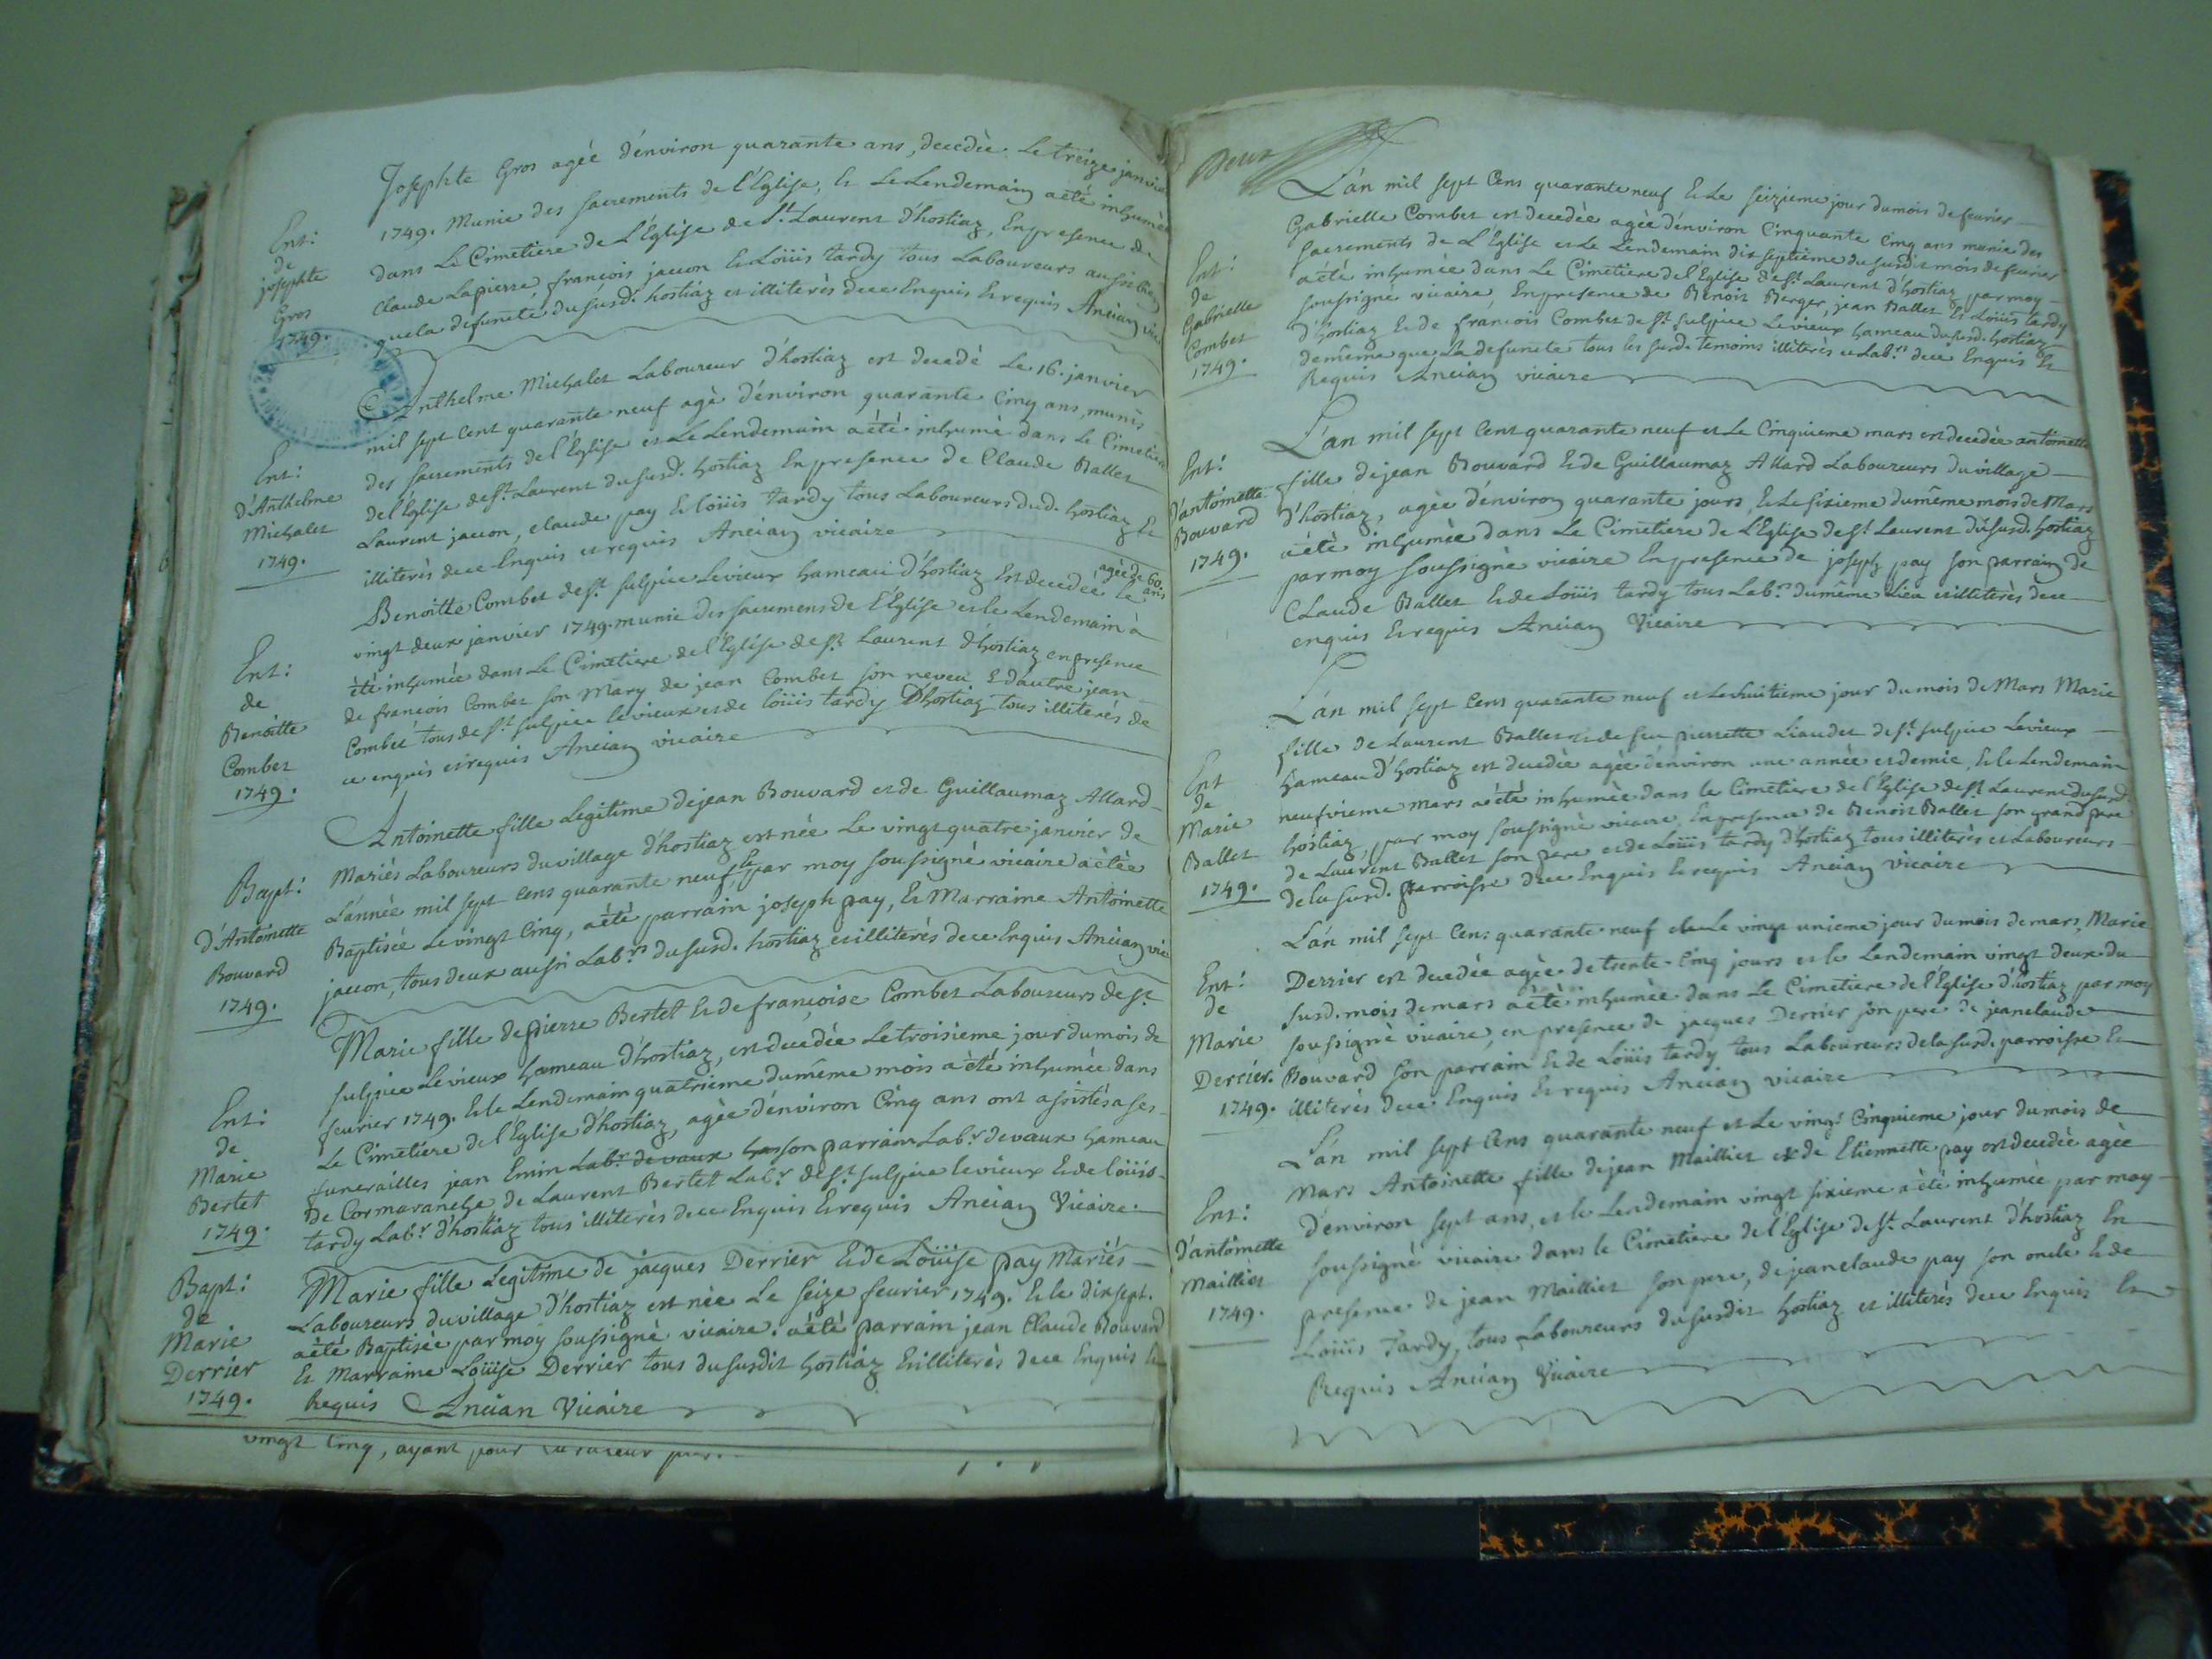 Josephte Gros agéé d'environ quarante ans, decedèe Le treize janvier
1749. Munie des sacrements de l'Eglise, Et Le Lendemain aété inhumèe
dans Le Cimetiere de L'Eglise de St. Laurent d'hostiaz, En presence de
Claude Lapierre françois jacon Et Loüis tardy tous Laboureurs aussi bien
que la defunete du susd. hostiaz et illiterès de ce Enquis Et requis Ancian vic
Ent:
de
josephte
Gros
1749.
Anthelme Michalet Laboureur d'hostiaz est decedé Le 16. janvier
mil sept Cent quarante neuf agè d'environ quarante Cinq ans, munis
des sacrements de l'Eglise et Le Lendemain aété inhumè dans Le Cimetiere
de l'Eglise de St. Laurent du susd. hostiaz En presence de Claude Ballet
Laurent jacon, claude pay Et loüis tardy tous Laboureurs dud. hostiaz Et
illiterès de ce Enquis et requis Ancian vicaire
Ent:
d'Anthelme
Michalet
1749.
agèe de 60 ans
Benoitte Combet de St. sulpice Levieux hameau d'hostiaz Est decedée Le
vingt deux janvier 1749. munie des sacremens de l'Eglise et le Lendemain à
été inhumèe dans Le Cimetiere de l'Eglise de St. Laurent d'hostiaz en presence
de francois Combet son Mary de jean Combet son neveu Et d'autre jean
Combet tous de St. sulpice levieux et de loüis tardy D'hostiaz tous illiterés de
ce enquis et requis Ancian vicaire
Ent:
de
Benoitte
Combet
1749.
Antoinette fille Legitime de jean Bouvard et de Guillaumaz Allard
Mariès Laboureurs du village d'hostiaz est née Le vingt quatre janvier de
L'année mil sept Cens quarante neuf, Et par moy soussigné vicaire aétèe
Baptisée Le vingt Cinq, aété parrain joseph pay, Et Marraine Antoinette
jacon, tous deux aussi Lab.rs du susd. hostiaz et illiterès de ce Enquis Ancian vic
Bapt:
d'Antoinette
Bouvard
1749.
Marie fille de pierre Bertet Et de françoise Combet Laboureurs de St.
sulpice Levieux hameau d'hostiaz, est decedée Le troisieme jour du mois de
fevrier 1749. Et le Lendemain quatrieme du même mois aété inhumée dans
Le Cimetiere de l'Eglise d'hostiaz, agèe d'environ Cinq ans ont assistés a ses
funerailles jean Emin Lab.r de vaux son parrain Lab.r de vaux hameau
de Cormaranche, de Laurent Bertet Lab.r de St. sulpice levieux Et de loüis
tardy Lab.r d'hostiaz tous illiterès de ce Enquis Et requis Ancian Vicaire.
Ent:
de
Marie
Bertet
1749.
Marie fille Legitime de jacques Derrier Et de Loüise pay Mariés
Laboureurs du village d'hostiaz est née Le seize fevrier 1749. Et le dixsept.
aété Baptisée par moy soussigné vicaire. aété parrain jean Claude Bouvard
Et Marraine Loüise Derrier tous du susdit hostiaz Et illiterès de ce Enquis Et
Requis Ancian Vicaire
Bapt:
de
Marie
Derrier
1749.
vingt Cinq, ayant pour
Deux
L'an mil sept Cens quarante neuf Et Le seizieme jour du mois de fevrier
Gabrielle Combet est decedèe agèe d'environ Cinquante Cinq ans munie des
sacrements de L'Eglise et Le Lendemain dix septieme du susdit mois de fevrier
aété inhumèe dans Le Cimetiere de l'Eglise de St. Laurent d'hostiaz par moy
soussigné vicaire, En presence de Benoit Berger, jean Ballet Et Loüis tardy
d'hostiaz Et de francois Combet de St. sulpice Levieux hameau du susd. hostiaz
de même que La defuncte tous les susd. temoins illiterès et Lab.rs de ce Enquis Et
Requis Ancian vicaire
Ent:
de
Gabrielle
Combet
1749.
L'an mil sept Cent quarante neuf et Le Cinquieme mars est decedèe antoinette
fille de jean Bouvard Et de Guillaumaz Allard Laboureurs du village
d'hostiaz, agèe d'environ quarante jours, Et Le sixieme du même mois de Mars
aété inhumèe dans Le Cimetiere de L'Eglise de St. Laurent du susd. hostiaz
par moy soussigné vicaire En presence de joseph pay son parrain de
Claude Ballet Et de Loüis tardy tous Lab.rs du même Lieu et illiterès de ce
enquis Et requis Ancian Vicaire
Ent:
d'antoinette
Bouvard
1749.
L'an mil sept Cens quarante neuf et Le huitieme jour du mois de Mars Marie
fille de Laurent Ballet et de feu pierrette Liaudet de St. sulpice Levieux
hameau d'hostiaz est decedèe agèe d'environ une année et demie, Et le Lendemain
neufvieme mars aété inhumèe dans le Cimetiere de l'Eglise de St. Laurent du susd.
hostiaz, par moy soussigné vicaire, En presence de Benoit Ballet son grand pere
de Laurent Ballet son pere et de Loüis tardy d'hostiaz tous illiterès et Laboureurs
de la susd. parroisse de ce Enquis Et requis Ancian vicaire
Ent
de
Marie
Ballet
1749.
L'an mil sept Cens quarante neuf et Le vingt unieme jour du mois de mars, Marie
Derrier est decedée agèe de trente Cinq jours et le Lendemain vingt deux du
susd. mois de mars aété inhumèe dans Le Cimetiere de l'Eglise d'hostiaz par moy
soussigné vicaire, en presence de jacques Derrier son pere de jeanclaude
Bouvard son parrain Et de Loüis tardy tous Laboureurs de la susd. parroisse Et
illiterès de ce Enquis Et requis Ancian vicaire
Ent:
de
Marie
Derrier.
1749.
L'an mil sept Cens quarante neuf et Le vingt Cinquieme jour du mois de
Mars Antoinette fille de jean Maillier et de Etiennette pay est decedèe agèe
d'environ sept ans, et le Lendemain vingt sixieme aété inhumèe par moy
soussigné vicaire dans le Cimetiere de l'Eglise de St. Laurent d'hostiaz En
presence de jean Maillier son pere, de jeanclaude pay son oncle Et de
Loüis Tardy, tous Laboureurs du susdit hostiaz et illiterès de ce Enquis Et
Requis Ancian Vicaire
Ent:
d'antoinette
Maillier
1749.